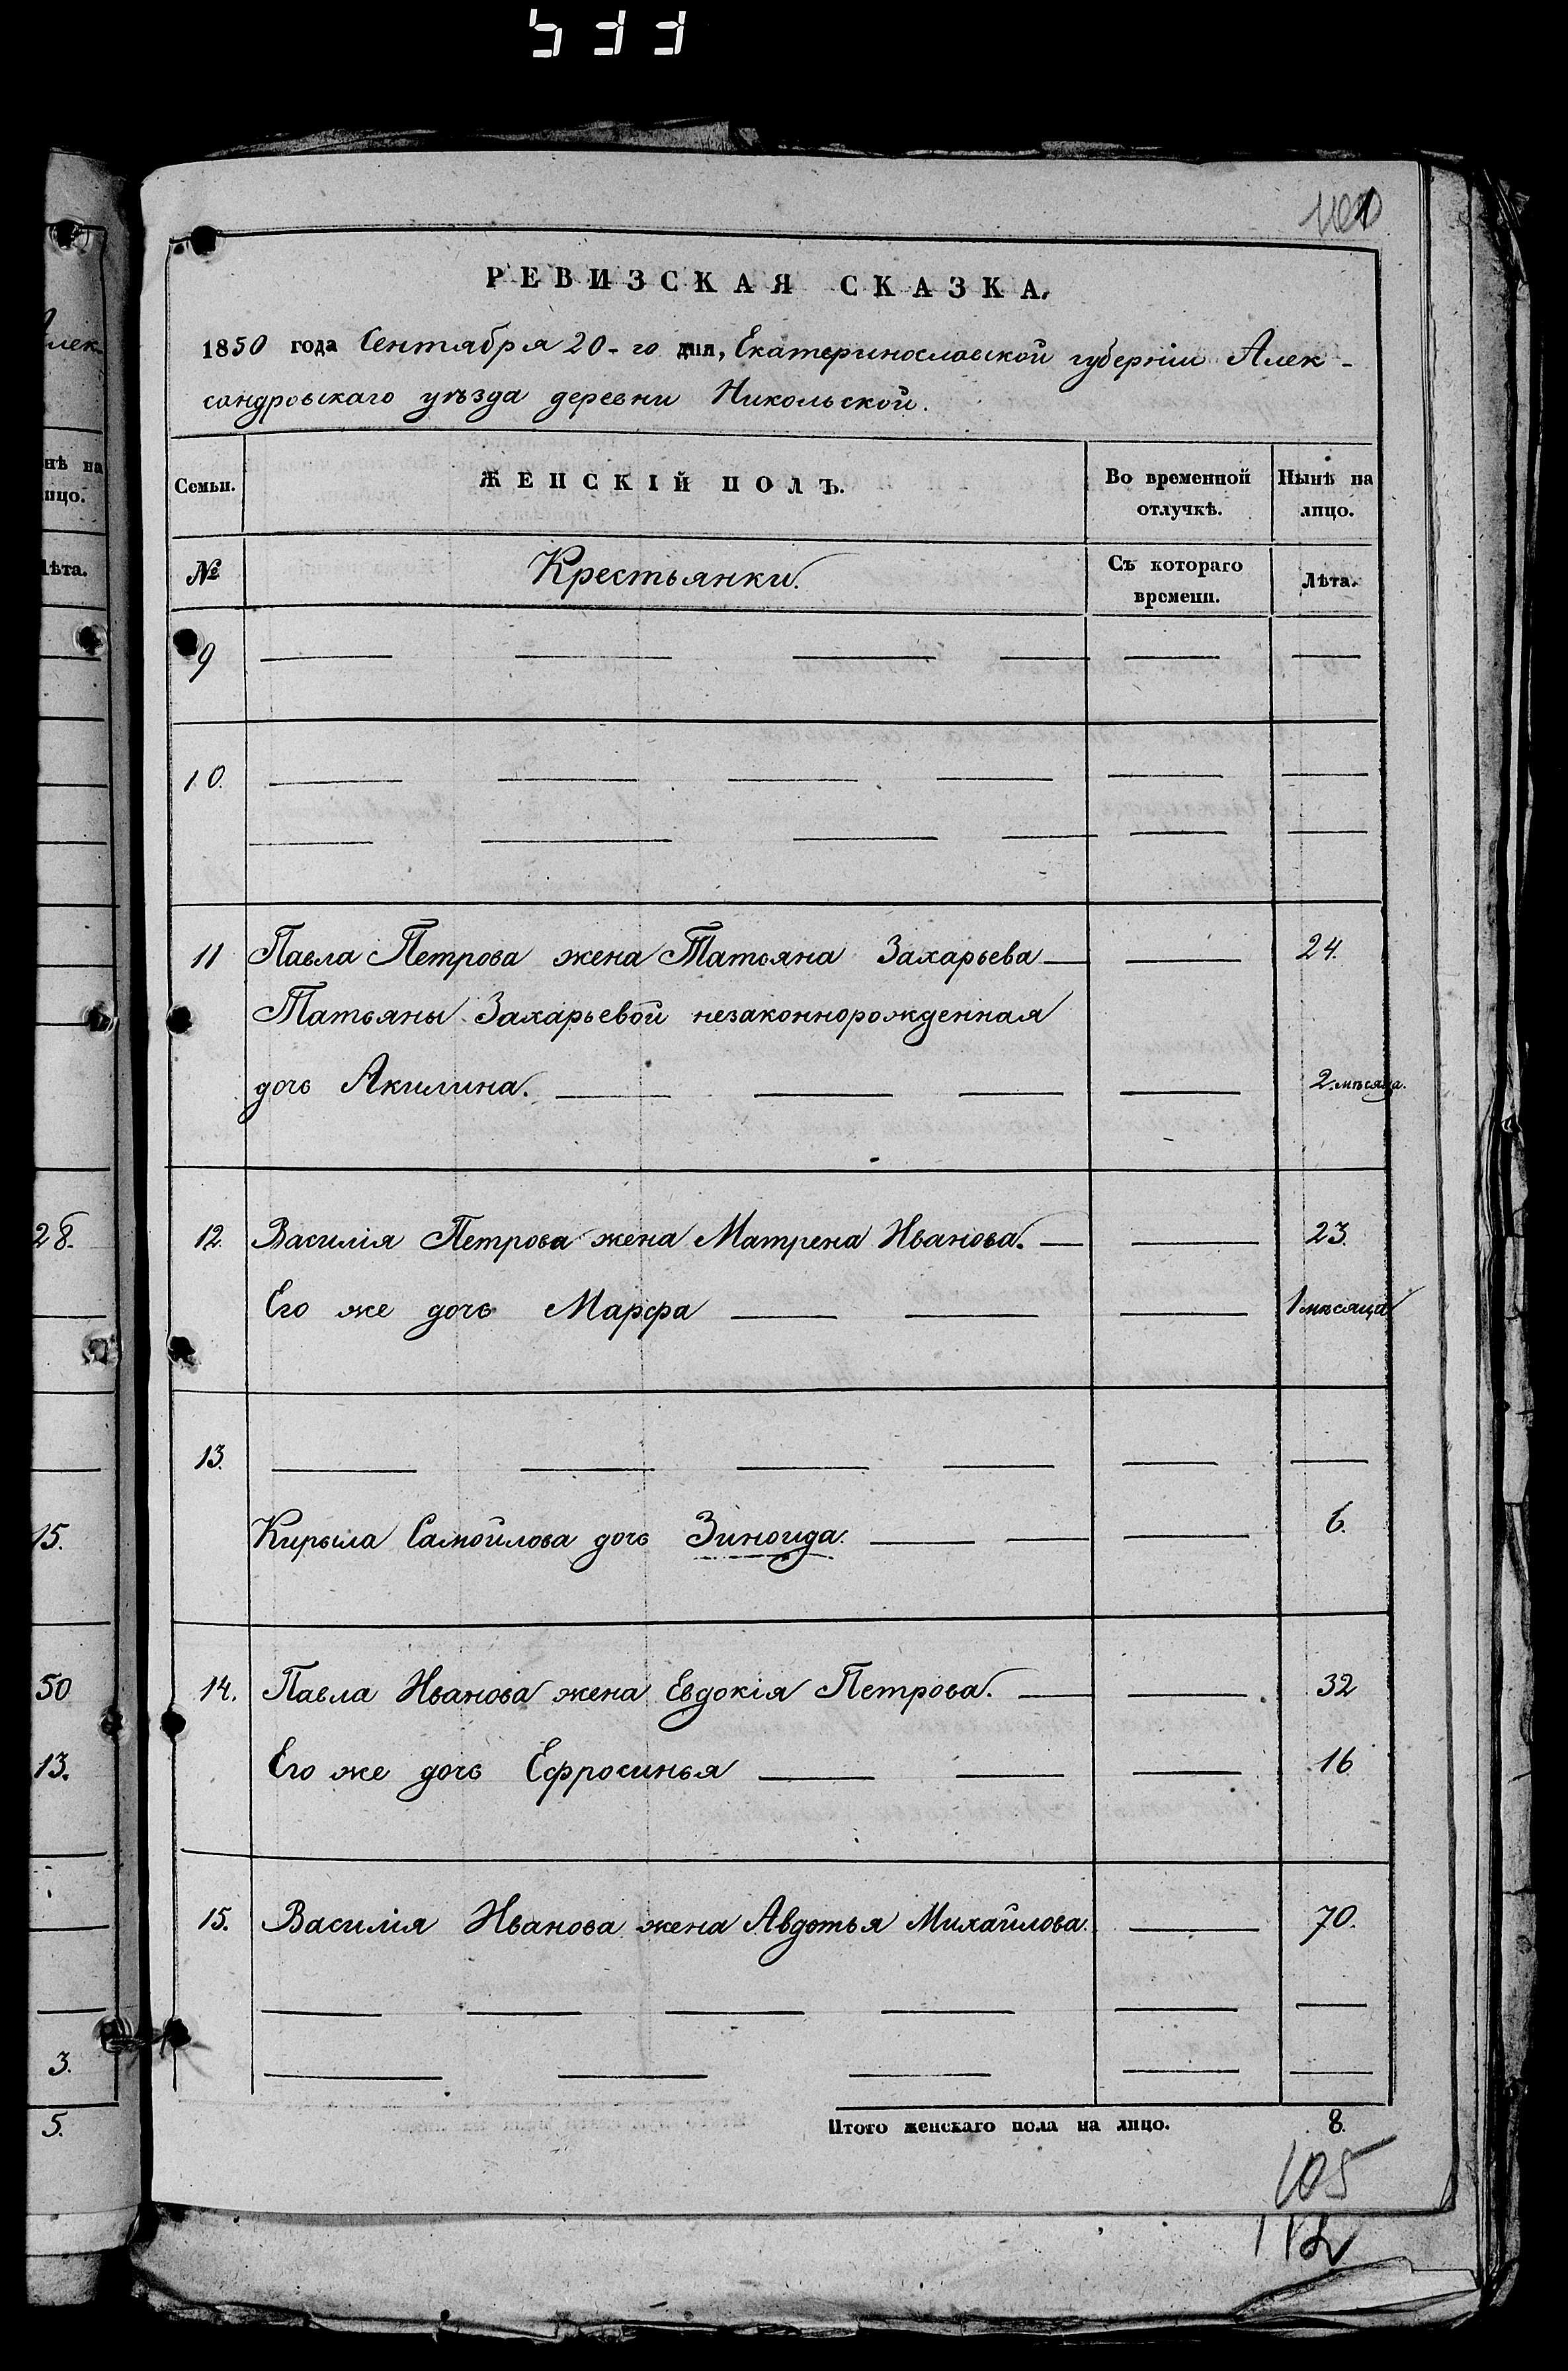 РЕВИЗСКАЯ СКАЗКА.
1850 года Сентября 20-го дня, Екатеринославской губерніи Алек-
сандровскаго уѣзда деревни Никольской.
Семьи.
ЖЕНСКІЙ ПОЛЪ.
Во временной отлучкѣ.
Нынѣ на лицо.
№
Крестьянки.
Съ котораго времени.
Лѣта.
9
10.
11 Павла Петрова жена Татьяна Захарьева 24.
Татьяны Захарьевой незаконнорожденная
дочь Акилина. 2 мѣсяца.
12. Василія Петрова жена Матрена Иванова. 23.
Его же дочь Марфа 1 мѣсяца
13.
Кирыла Самойлова дочь Зиноида. 6.
14. Павла Иванова жена Евдокія Петрова. 32
Его же дочь Ефросинья 16
15. Василія Иванова жена Авдотья Михайлова. 70.
Итого женскаго пола на лицо. 8.
105
112
лек-
нѣ на
ицо.
лѣта.
28.
15.
50
13.
3.
5.